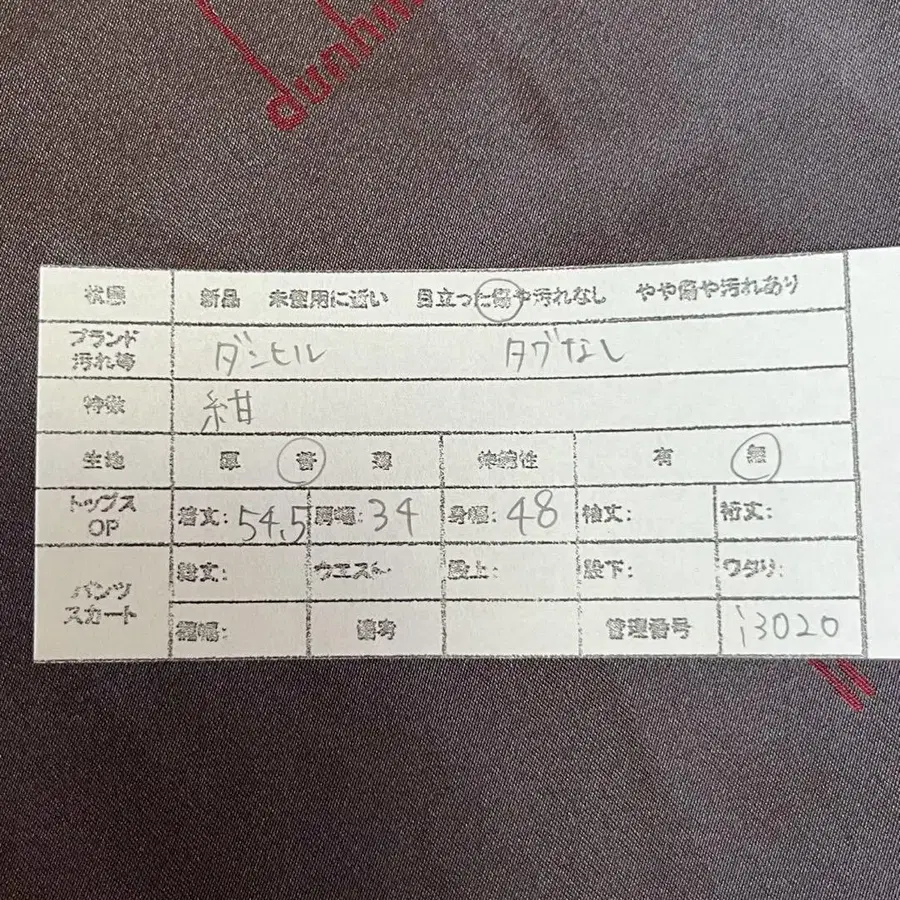 dunh
状態 新品 未使用に近い 目立った傷や汚れなし やや傷や汚れあり
ブランド 汚れ等 ダンヒル タグなし
特徴 紺
生地 厚 普 薄 伸縮性 有 無
トップス OP 着丈: 54.5 肩幅: 34 身幅: 48 袖丈: 裄丈:
パンツ スカート 総丈: ウエスト 股上: 股下: ワタリ:
裾幅: 備考 管理番号 i3020